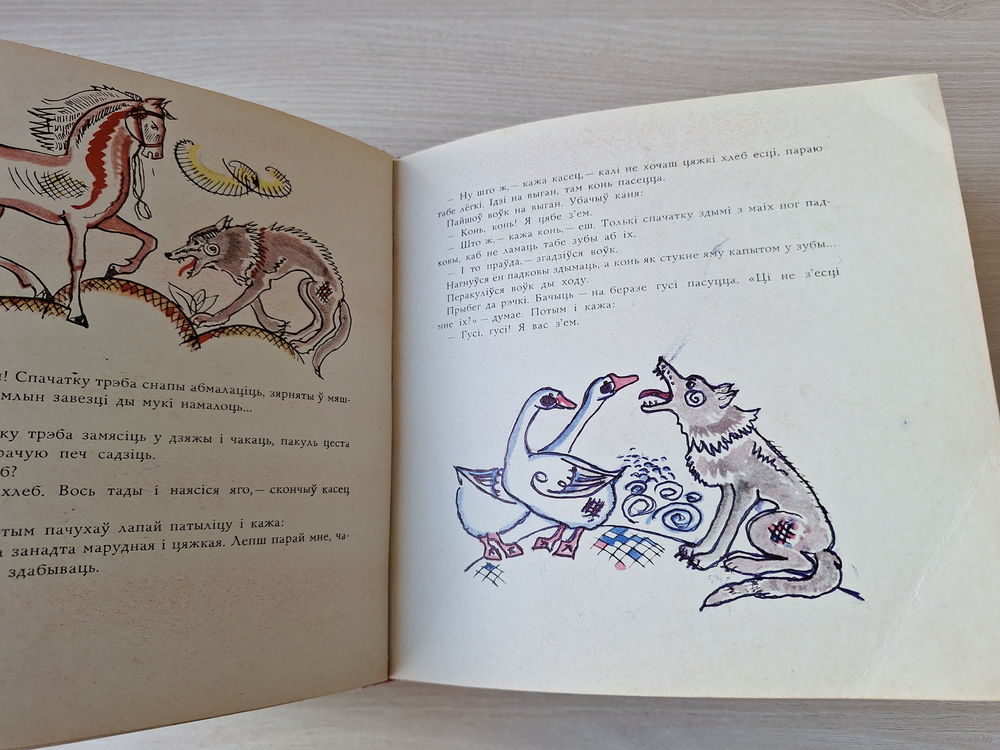 ! Спачатку трэба снапы абмалаціць, зярняты ў мяш-
млын завезці ды мукі намалоць...
ку трэба замясіць у дзяжы і чакаць, пакуль цеста
рачую печ садзіць.
б?
хлеб. Вось тады і наясіся яго,— скончыў касец
тым пачухаў лапай патыліцу і кажа:
занадта марудная і цяжкая. Лепш парай мне, ча-
здабываць.
— Ну што ж,— кажа касец,— калі не хочаш цяжкі хлеб есці, параю
табе лёгкі. Ідзі на выган, там конь пасецца.
Пайшоў воўк на выган. Убачыў каня:
— Конь, конь! Я цябе з'ем.
— Што ж,— кажа конь,— еш. Толькі спачатку здымі з маіх ног пад-
ковы, каб не ламаць табе зубы аб іх.
— І то праўда,— згадзіўся воўк.
Нагнуўся ён падковы здымаць, а конь як стукне яму капытом у зубы...
Перакуліўся воўк ды ходу.
Прыбег да рэчкі. Бачыць — на беразе гусі пасуцца. «Ці не з'есці
мне іх?» — думае. Потым і кажа:
— Гусі, гусі! Я вас з'ем.
www.ay.by